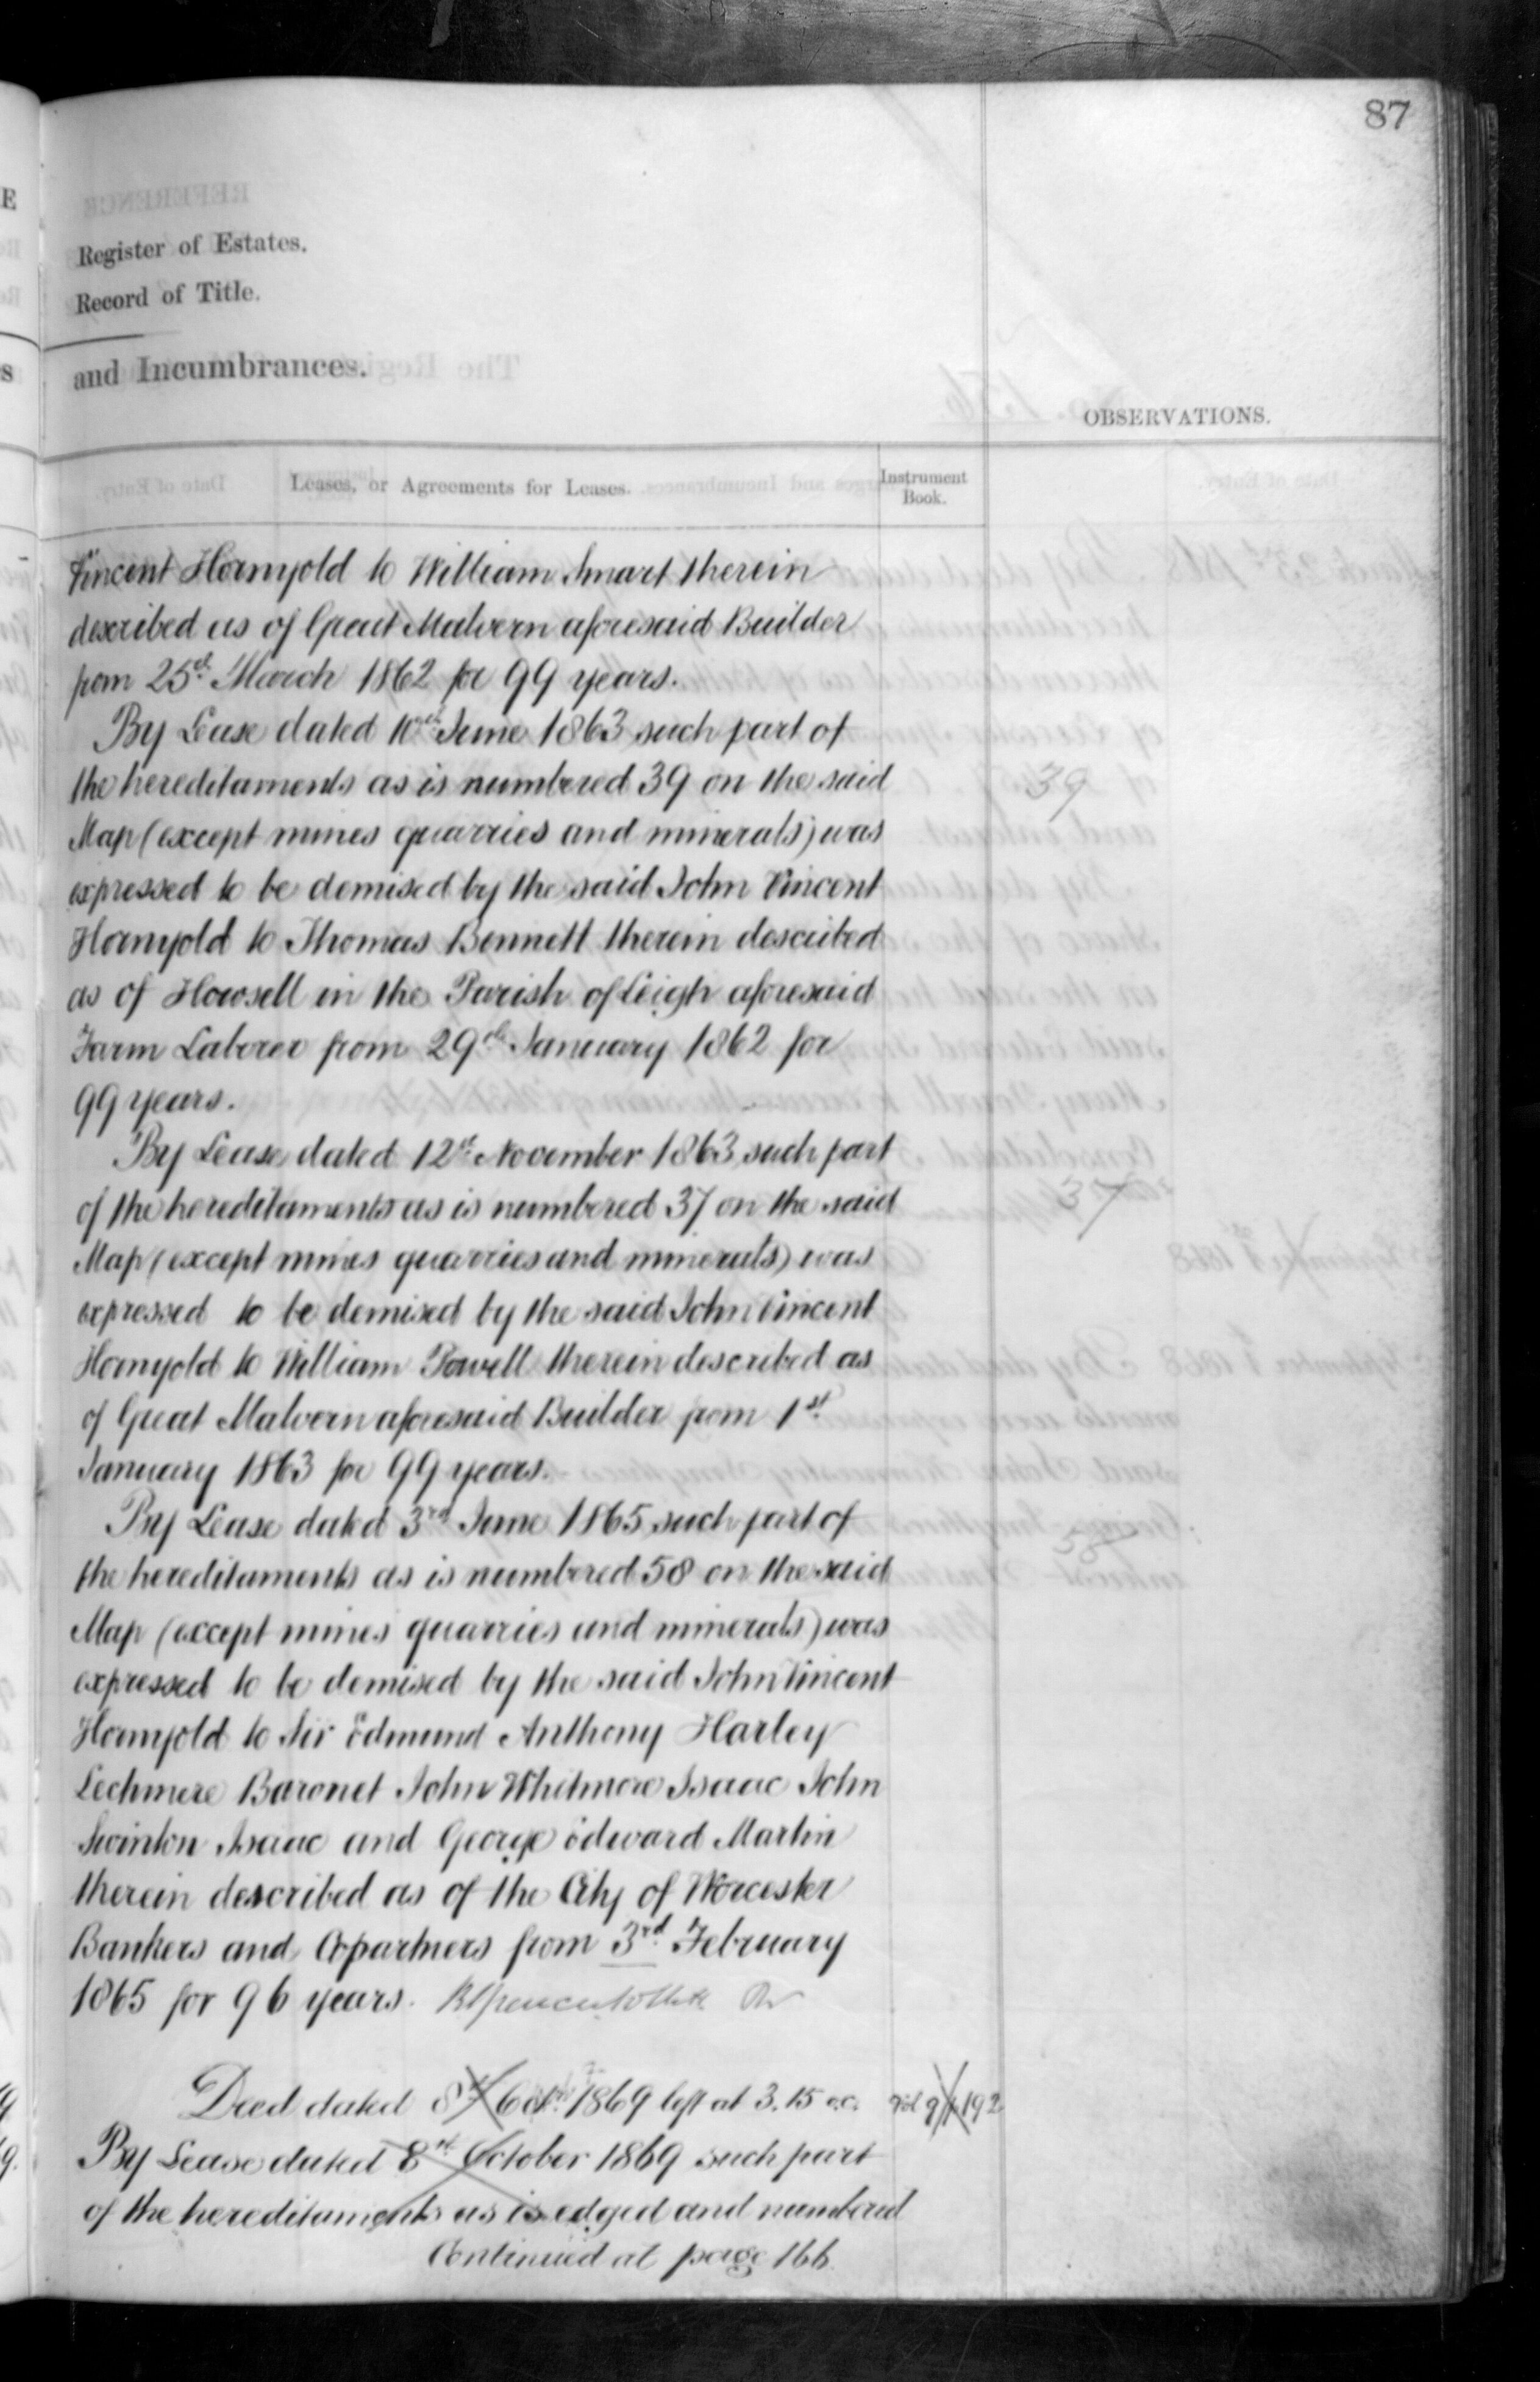 87
Register of Estates.
Record of Title.
and Incumbrances.
OBSERVATIONS.
Leases, or Agreements for Leases.
Instrument Book.
Vincent Hornyold to William Smart therein
described as of Great Malvern aforesaid Builder
from 25th March 1862 for 99 years.
By Lease dated 10th June 1863 such part of
the hereditaments as is numbered 39 on the said
39
Map (except mines quarries and minerals) was
expressed to be demised by the said John Vincent
Hornyold to Thomas Bennett therein described
as of Howsell in the Parish of Leigh aforesaid
Farm Laborer from 29th January 1862 for
99 years.
By Lease dated 12th November 1863 such part
of the hereditaments as is numbered 37 on the said
37
Map (except mines quarries and minerals) was
expressed to be demised by the said John Vincent
Hornyold to William Powell therein described as
of Great Malvern aforesaid Builder from 1st
January 1863 for 99 years.
By Lease dated 3rd June 1865 such part of
58
the hereditaments as is numbered 58 on the said
Map (except mines quarries and minerals) was
expressed to be demised by the said John Vincent
Hornyold to Sir Edmund Anthony Harley
Lechmere Baronet John Whitmore Isaac John
Swinton Isaac and George Edward Martin
therein described as of the City of Worcester
Bankers and Copartners from 3rd February
1865 for 96 years.
Deed dated 8th Octr. 1869 left at 3.15 o.c.
192
By Lease dated 8th October 1869 such part
of the hereditaments as is edged and numbered
Continued at page 166